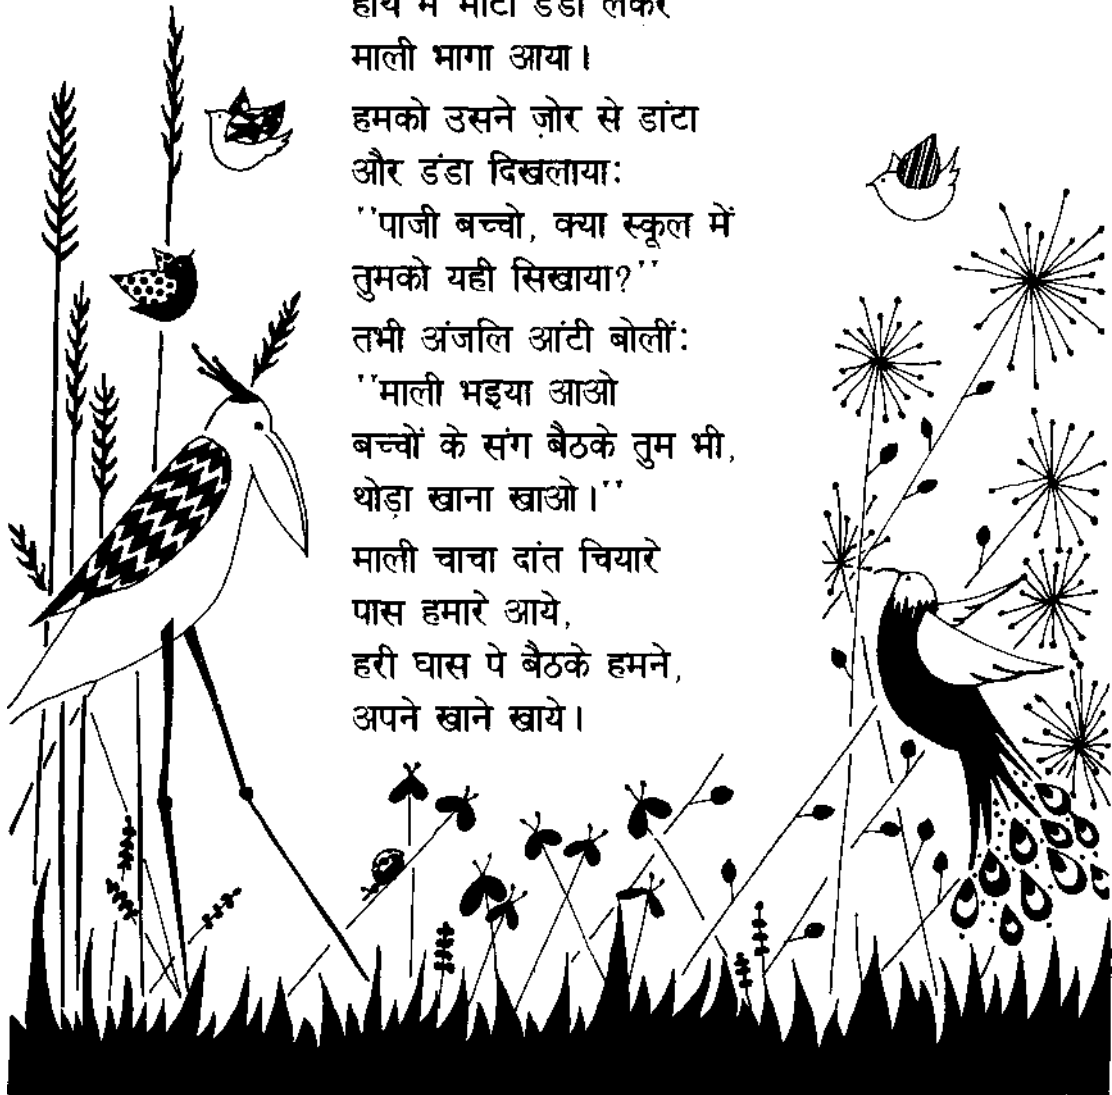 हाथ में मोटा डंडा लेकर
माली भागा आया।
हमको उसने ज़ोर से डांटा
और डंडा दिखलाया:
"पाजी बच्चो, क्या स्कूल में
तुमको यही सिखाया?"
तभी अंजलि आंटी बोलीं:
"माली भइया आओ
बच्चों के संग बैठके तुम भी,
थोड़ा खाना खाओ।"
माली चाचा दांत चियारे
पास हमारे आये,
हरी घास पे बैठके हमने,
अपने खाने खाये।